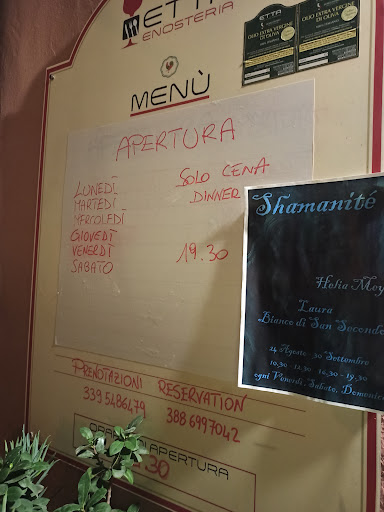 ETTA
ENOSTERIA
ETTA
OLIO EXTRA VERGINE
DI OLIVA
ETTA
OLIO EXTRA VERGINE
DI OLIVA
MENÙ
APERTURA
LUNEDÌ SOLO CENA
MARTEDÌ DINNER
MERCOLEDÌ
GIOVEDÌ
VENERDÌ 19.30
SABATO
Shamanité
Laura
Bianco di San Secondo
24 Agosto 30 Settembre
10,30 12,30 16,30 - 19,30
ogni Venerdì, Sabato,
PRENOTAZIONI RESERVATION
339 5486479 388 6997042
APERTURA